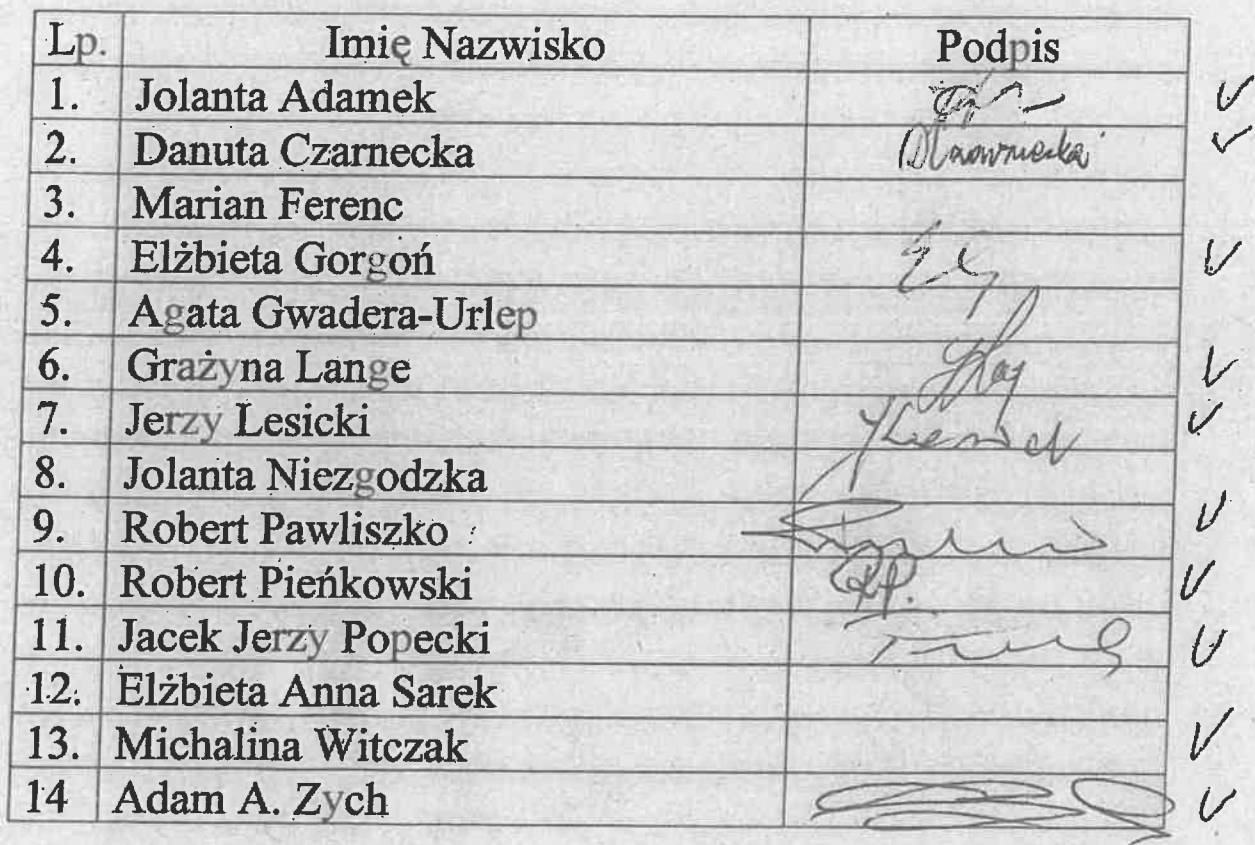 Lp. Imię Nazwisko Podpis
1. Jolanta Adamek
2. Danuta Czarnecka DCzarnecka
3. Marian Ferenc
4. Elżbieta Gorgoń
5. Agata Gwadera-Urlep
6. Grażyna Lange
7. Jerzy Lesicki
8. Jolanta Niezgodzka
9. Robert Pawliszko
10. Robert Pieńkowski RP.
11. Jacek Jerzy Popecki
12. Elżbieta Anna Sarek
13. Michalina Witczak
14 Adam A. Zych